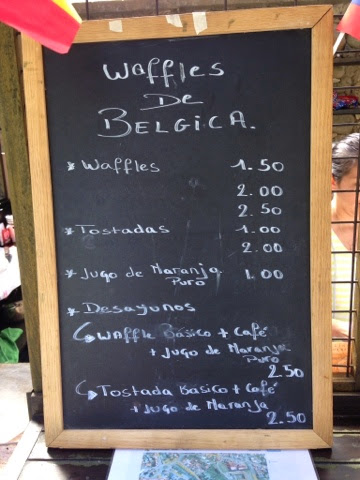 Waffles
De
BELGICA.
* Waffles 1.50
2.00
2.50
* Tostadas 1.00
2.00
* Jugo de Naranja 1.00
Puro
* Desayunos
Waffle Basico + Café
+ Jugo de Naranja
Puro
2.50
Tostada Basico + Café
+ Jugo de Naranja
2.50